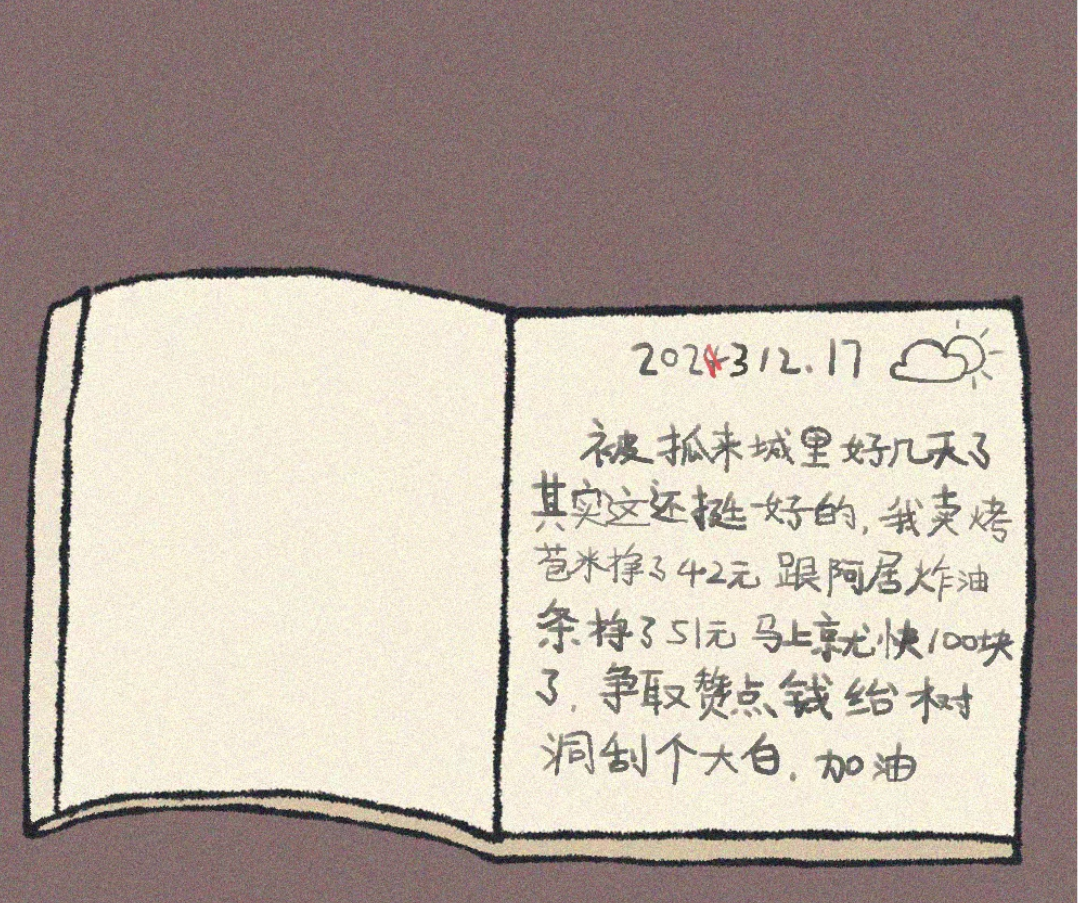 2023 12.17
被抓来城里好几天了
其实这还挺好的,我卖烤
苞米挣了42元 跟阿居炸油
条挣了51元 马上就快100块
了,争取攒点钱给树
洞刮个大白,加油